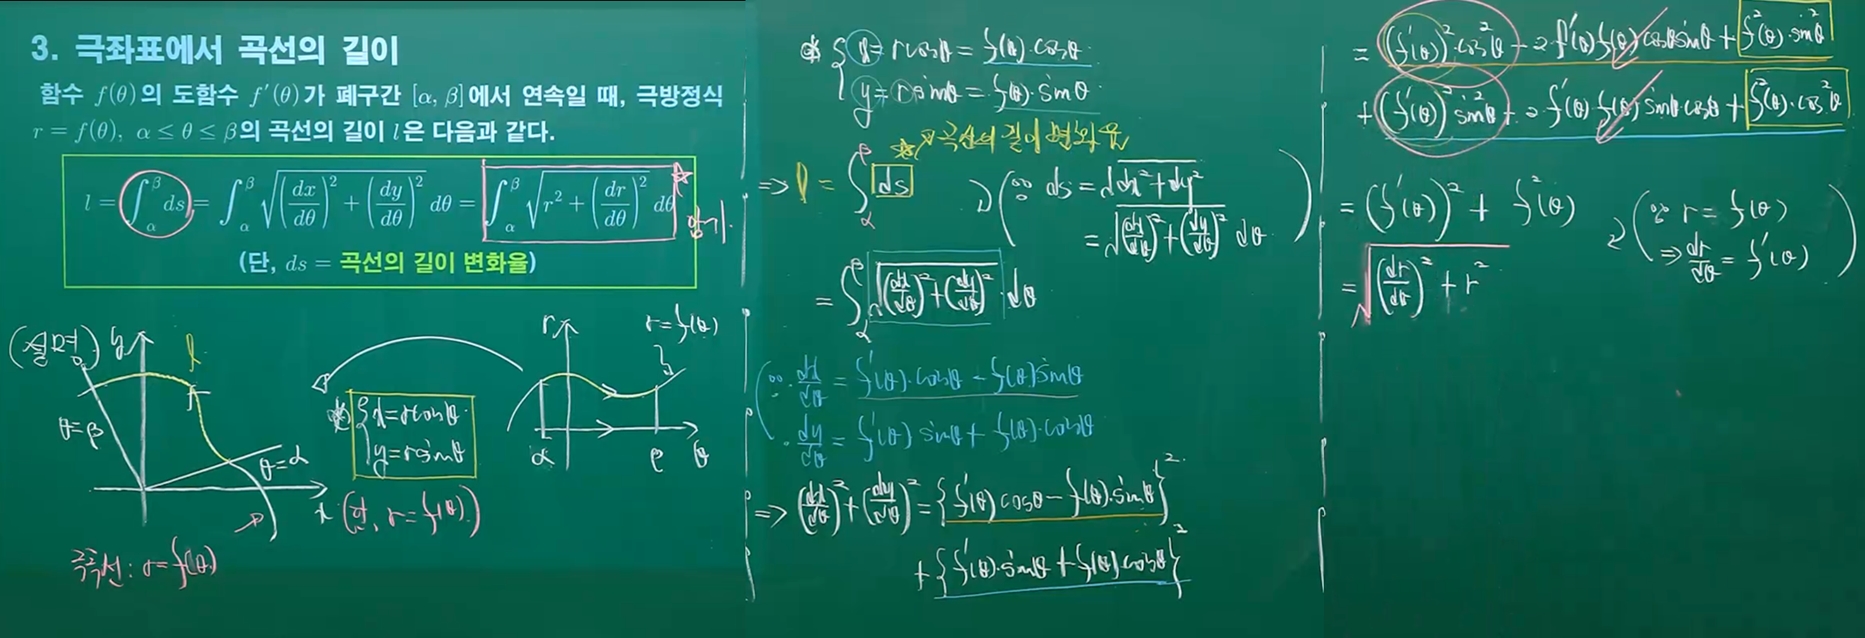 3. 극좌표에서 곡선의 길이
함수 f(θ)의 도함수 f′(θ)가 폐구간 [α, β]에서 연속일 때, 극방정식
r = f(θ), α ≤ θ ≤ β의 곡선의 길이 l은 다음과 같다.
l = ∫_α^β ds = ∫_α^β √((dx/dθ)² + (dy/dθ)²) dθ = ∫_α^β √(r² + (dr/dθ)²) dθ
(단, ds = 곡선의 길이 변화율)
(설명)
y
l
θ=β
θ=α
x
{x=rcosθ
y=rsinθ
(단, r=f(θ))
극곡선: r=f(θ)
r
r=f(θ)
α
β
θ
{x=rcosθ=f(θ)·cosθ
y=rsinθ=f(θ)·sinθ
곡선의 길이 변화율
⇒ l = ∫_α^β ds
(∵ ds=√(dx²+dy²)
=√((dx/dθ)²+(dy/dθ)²) dθ)
= ∫_α^β √((dx/dθ)²+(dy/dθ)²)·dθ
(∵ · dx/dθ = f′(θ)·cosθ - f(θ)sinθ
· dy/dθ = f′(θ) sinθ + f(θ)·cosθ
⇒ (dx/dθ)²+(dy/dθ)² = {f′(θ) cosθ - f(θ)·sinθ}²
+ {f′(θ)·sinθ + f(θ)·cosθ}²
= (f′(θ))²·cos²θ - 2f′(θ)f(θ)cosθsinθ + f²(θ)·sin²θ
+ (f′(θ))²sin²θ + 2f′(θ)·f(θ)sinθ·cosθ + f²(θ)·cos²θ
= (f′(θ))² + f²(θ)
(∵ r = f(θ)
⇒ dr/dθ = f′(θ))
= √((dr/dθ)² + r²